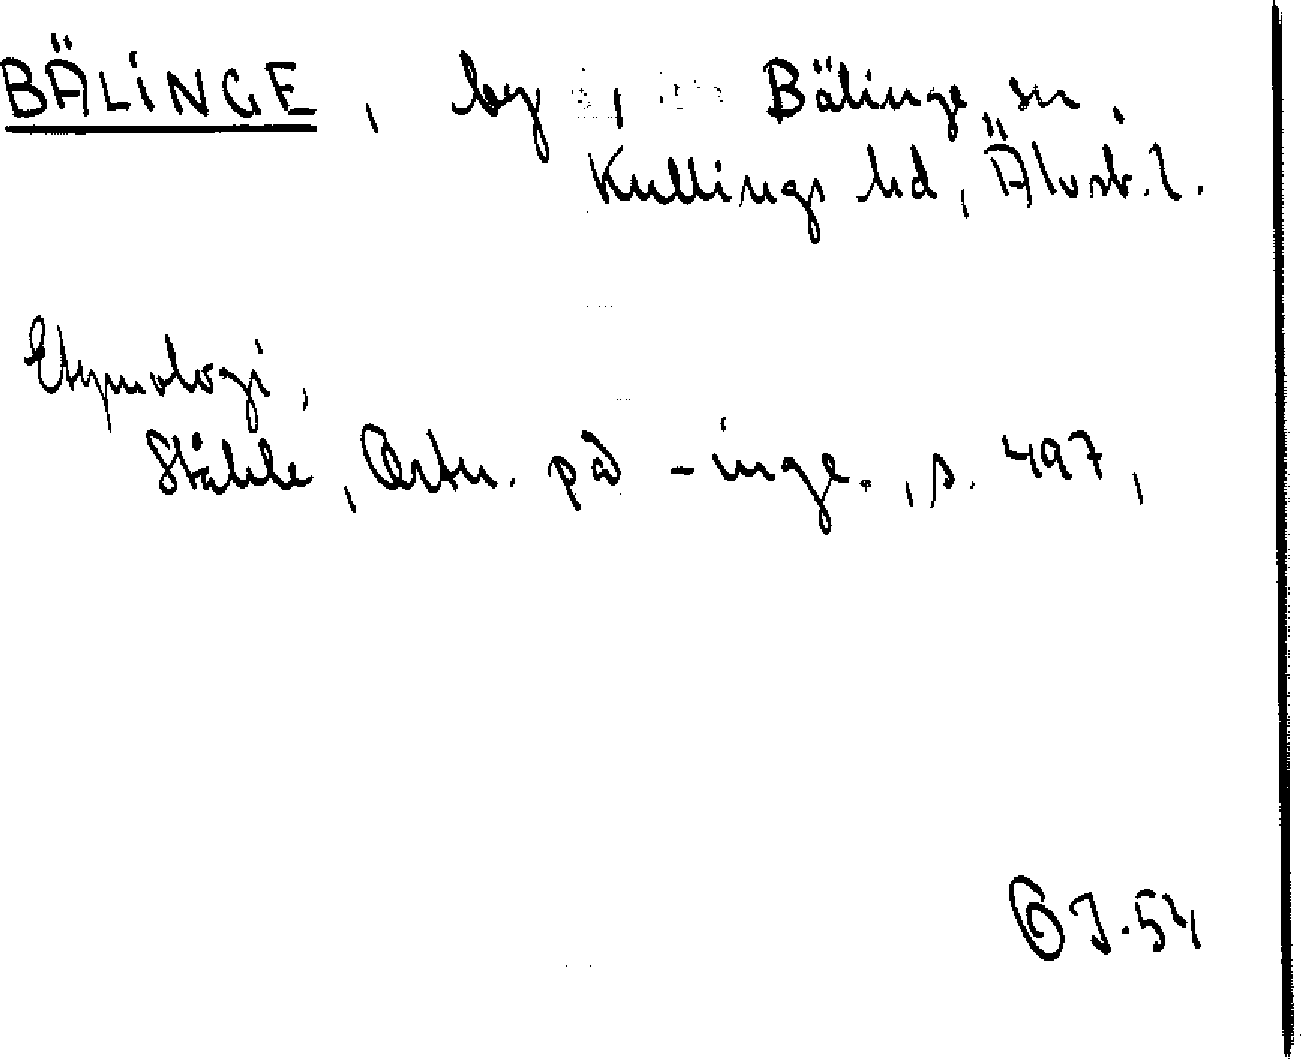 BÄLINGE, by, Bälinge sn,
Kullings hd, Älvsb. l.
Etymologi,
Ståhle, Ortn. på -inge., s. 497,
J. 54